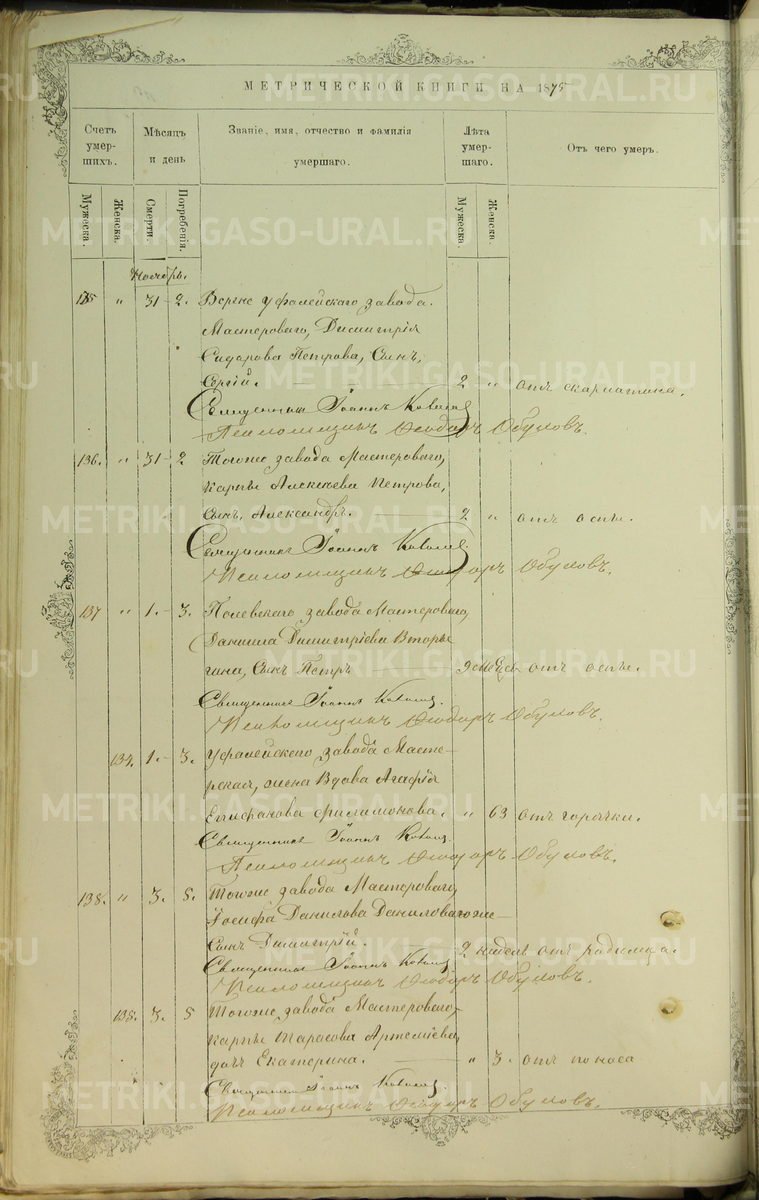 МЕТРИЧЕСКОЙ КНИГИ НА 1875
Счетъ умершихъ. Мѣсяцъ и день Званіе, имя, отчество и фамилія умершаго. Лѣта умершаго. Отъ чего умеръ.
Мужеска. Женска. Смерти. Погребенія. Мужеска. Женска.
Ноябрь.
135 " 31 - 2. Верхне Уфалейскаго завода
Мастероваго, Димитрія
Сидорова Петрова, Сынъ,
Сергій. 2 " отъ скарлатина.
Священникъ Іоаннъ
Псаломщикъ Ѳеодоръ Обуховъ.
136. " 31 - 2 Тогоже завода Мастероваго,
Карпы Алексѣева Петрова,
Сынъ, Александръ. 2 " отъ оспы.
Священникъ Іоаннъ
Псаломщикъ Ѳеодоръ Обуховъ.
137 " 1. - 3. Полевскаго завода Мастероваго,
Даниила Димитріева Вторы
гина, Сынъ Петръ 9 мѣся отъ оспы.
Священникъ Іоаннъ
Псаломщикъ Ѳеодоръ Обуховъ.
134. 1. - 3. Уфалейскаго завода Масте-
рская, жена Вдова Агафія
Епифанова Филимонова. " 63 отъ горячки.
Священникъ Іоаннъ
Псаломщикъ Ѳеодоръ Обуховъ.
138. " 3. 5. Тогоже завода Мастероваго
Іосифа Данилова Даниловагоже
Сынъ Димитрій. 2 недель отъ родимца.
Священникъ Іоаннъ
Псаломщикъ Ѳеодоръ Обуховъ.
135. 3. 5 Тогоже завода Мастероваго
Карпы Тарасова Артеміева,
дочь Екатерина. " 3. отъ поноса
Священникъ Іоаннъ
Псаломщикъ Ѳеодоръ Обуховъ.
METRIKI.GASO-URAL.RU